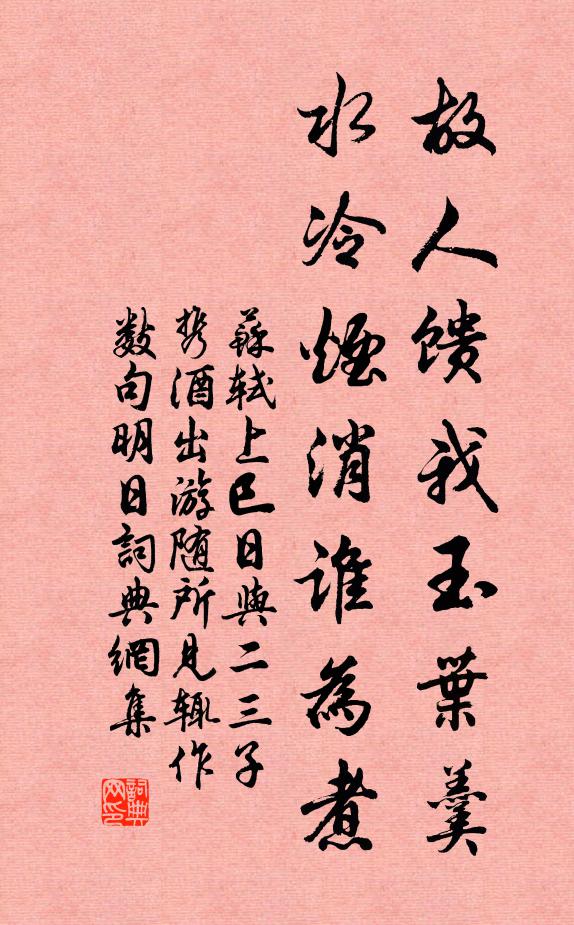 故人馈我玉葉羹
水冷煙消誰為煮
蘇軾上巳日與二三子
携酒出游随所見輒作
数句明日詞典網集
詞典
网印